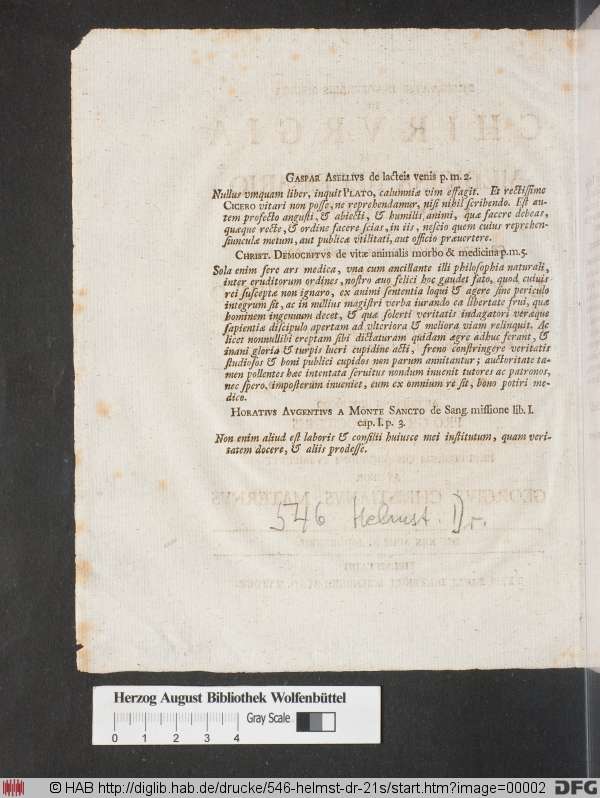 GASPAR ASELLIVS de lacteis venis p. m. 2.
Nullus vmquam liber, inquit PLATO, calumniæ vim effugit. Et rectissime
CICERO vitari non posse, ne reprehendamur, nisi nihil scribendo. Est au-
tem profecto angusti, & abiecti, & humilis animi, quæ facere debeas,
quæque recte, & ordine facere scias, in iis, nescio quem cuius reprehen-
siunculæ metum, aut publicæ vtilitati, aut officio præuertere.
CHRIST. DEMOCRITVS de vitæ animalis morbo & medicina p. m. 5.
Sola enim fere ars medica, vna cum ancillante illi philosophia naturali,
inter eruditorum ordines, nostro æuo felici hoc gaudet fato, quod cuiuis
rei susceptæ non ignaro, ex animi sententia loqui & agere sine periculo
integrum sit, ac in nullius magistri verba iurando ea libertate frui, quæ
hominem ingenuum decet, & quæ solerti veritatis indagatori veræque
sapientiæ discipulo apertam ad vlteriora & meliora viam relinquit. Ac
licet nonnullibi ereptam sibi dictaturam quidam ægre adhuc ferant, &
inani gloria & turpis lucri cupidine acti, freno constringere veritatis
studiosos & boni publici cupidos non parum annitantur; auctoritate ta-
men pollentes hæc intentata seruitus nondum inuenit tutores ac patronos,
nec spero, imposterum inueniet, cum ex omnium re sit, bono potiri me-
dico.
HORATIVS AVGENTIVS A MONTE SANCTO de Sang. missione lib. I.
cap. I. p. 3.
Non enim aliud est laboris & consilii huiusce mei institutum, quam veri-
tatem docere, & aliis prodesse.
546 Helmst. Dr.
CHIRVRGIA
GEORGIVS CHRISTIANVS MATERNVS
Herzog August Bibliothek Wolfenbüttel
Gray Scale
0 1 2 3 4
© HAB http://diglib.hab.de/drucke/546-helmst-dr-21s/start.htm?image=00002
DFG